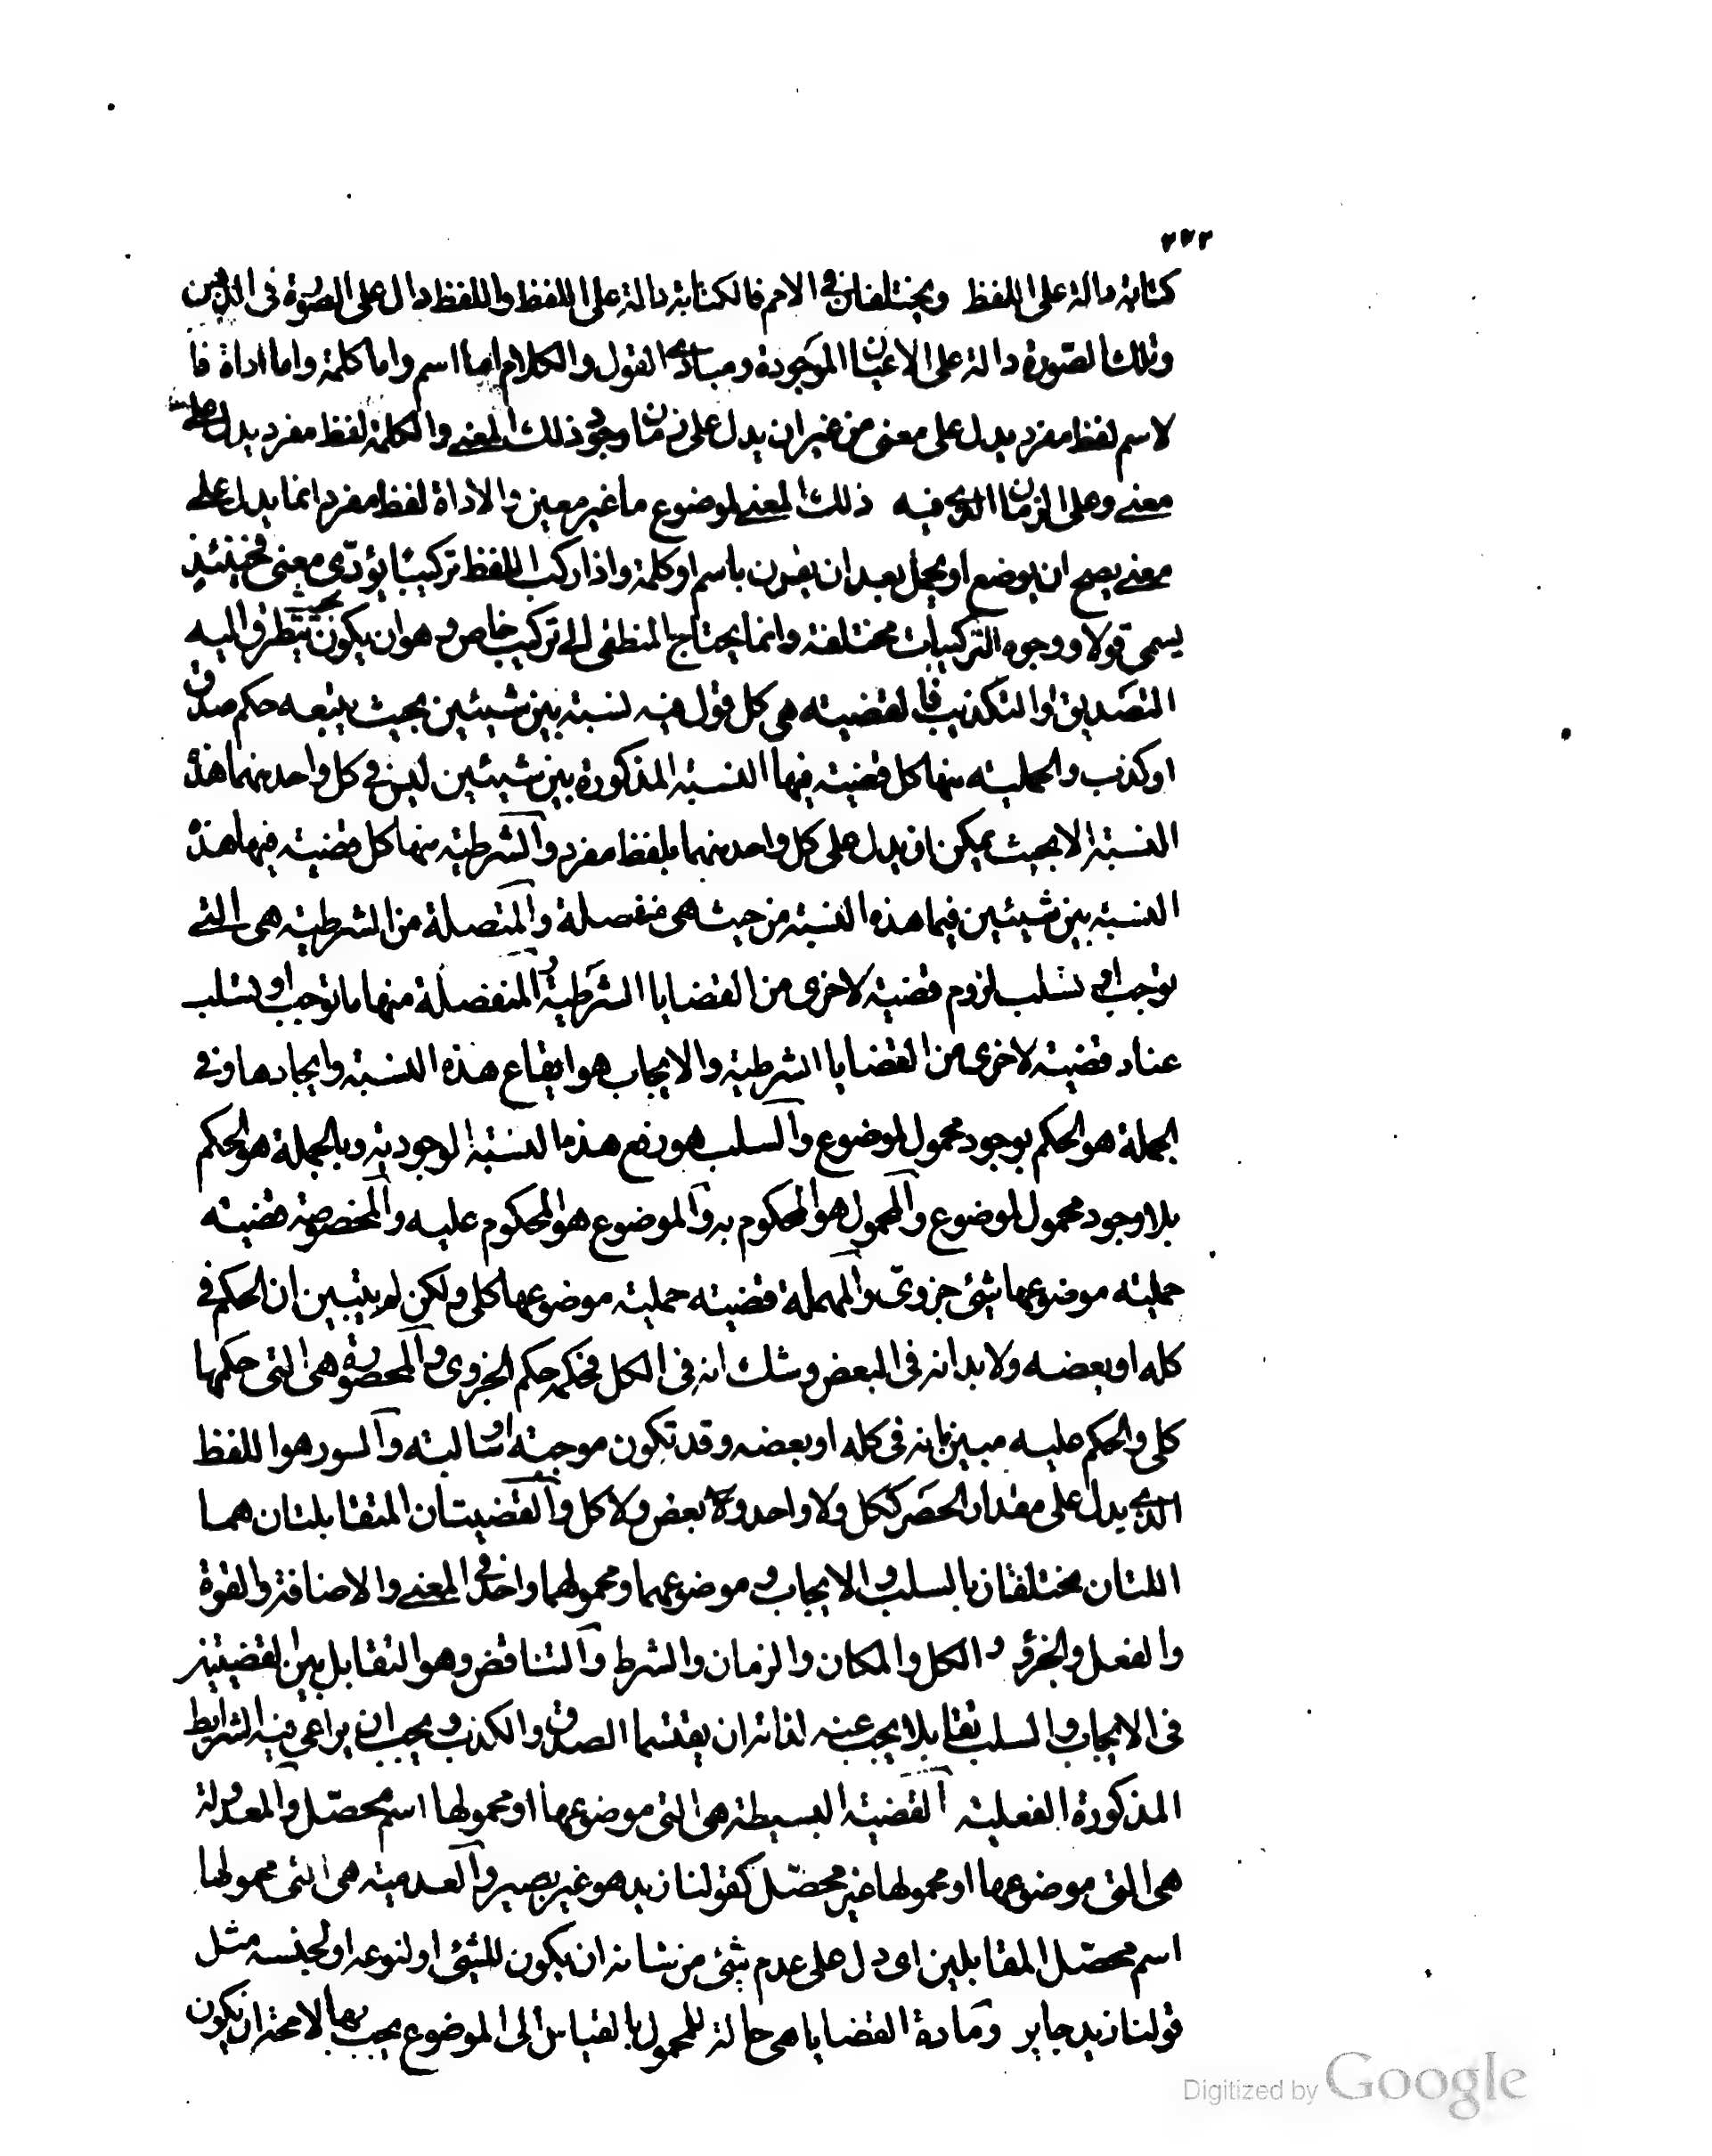 ٣٧٢
كتابة دالة على اللفظ ويختلفان فى الامم فالكتابة دالة على اللفظ واللفظ دال على الصورة فى الذهن
وتلك الصورة دالة على الاعيان الموجودة ومبادى القول والكلام اما اسم واما كلمة واما اداة فا
لاسم لفظ مفرد يدل على معنى من غير ان يدل على زمان وجود ذلك المعنى والكلمة لفظ مفرد يدل على
معنى وعلى الزمان الذى فيه ذلك المعنى لموضوع ما غير معين والاداة لفظ مفرد انما يدل على
معنى يصح ان يوضع او يحمل بعد ان يقرن باسم او كلمة واذا ركب اللفظ تركيبا يؤدّى معنى فحينئذ
يسمى قولا ووجوه التركيبات مختلفة وانما يحتاج المنطقى الى تركيب خاص وهو ان يكون بحيث يتطرق اليه
التصديق او التكذيب فالقضية هى كل قول فيه نسبة بين شيئين بحيث يتبعه حكم صدق
او كذب والحملية منها كل قضية فيها النسبة المذكورة بين شيئين ليس فى كل واحد منهما هذه
النسبة الا بحيث يمكن ان يدل على كل واحد منهما بلفظ مفرد والشرطية منها كل قضية فيها هذه
النسبة بين شيئين فيهما هذه النسبة من حيث هى منفصلة والمتصلة من الشرطية هى التى
توجب او تسلب لزوم قضية لاخرى من القضايا الشرطية والمنفصلة منها ما توجب او تسلب
عناد قضية لاخرى من القضايا الشرطية والايجاب هو ايقاع هذه النسبة وايجادها وفى
الجملة هو الحكم بوجود محمول لموضوع والسلب هو رفع هذه النسبة الوجودية وبالجملة هو الحكم
بلا وجود محمول لموضوع والمحمول هو المحكوم به والموضوع هو المحكوم عليه والمخصوصة قضية
حملية موضوعها شئ جزوىّ والمهملة قضية حملية موضوعها كلى ولكن لم يتبين ان الحكم فى
كله او بعضه ولا بد انه فى البعض وشك انه فى الكل فحكمه حكم الجزوى والمحصورة هى التى حكمها
كلى والحكم عليه مبين بانه فى كله او بعضه وقد تكون موجبة او سالبة والسور هو اللفظ
الذى يدل على مقدار الحصر ككل ولا واحد ولا بعض ولا كل والقضيتان المتقابلتان هما
اللتان مختلفتان بالسلب والايجاب وموضوعهما ومحمولهما واحد فى المعنى والاضافة والقوة
والفعل والجزؤ والكل والمكان والزمان والشرط والتناقض وهو التقابل بين القضيتين
فى الايجاب والسلب تقابلا يجب عنه لذاته ان يقتسما الصدق والكذب ويجب ان يراعى فيه الشرايط
المذكورة الفعلية القضية البسيطة هى التى موضوعها او محمولها اسم محصّل والمعدولة
هى التى موضوعها او محمولها غير محصّل كقولنا زيد هو غير بصير والعدمية هى التى محمولها
اسم محصّل المقابلين اى دل على عدم شئ من شانه ان يكون للشئ او لنوعه او لجنسه مثل
قولنا زيد جاير ومادة القضايا هى حالة للمحمول بالقياس الى الموضوع يجب بها لا محة ان يكون
Digitized by Google